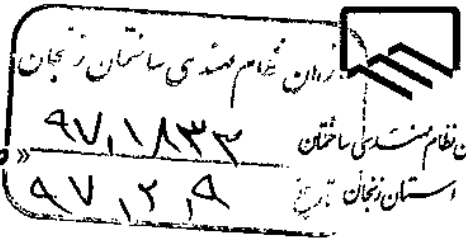 سازمان نظام مهندسی ساختمان زنجان
۹۷,۱۸۳۳
۹۷,۲,۹
ن نظام مهندسی ساختمان
استان زنجان تاریخ